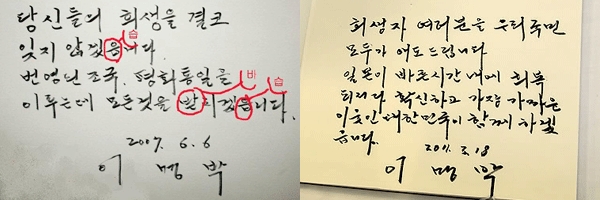 당신들의 희생을 결코
습
잊지 않겠읍니다.
번영된 조국, 평화통일을
바 습
이루는데 모든것을 받치겠읍니다.
2007. 6. 6
이 명 박
희생자 여러분을 우리국민
모두가 애도 드립니다
일본이 바른시간내에 회복
되리라 확신하고 가장 가까운
이웃인 대한민국이 함께 하겠
읍니다.
2011. 3. 18
이 명 박